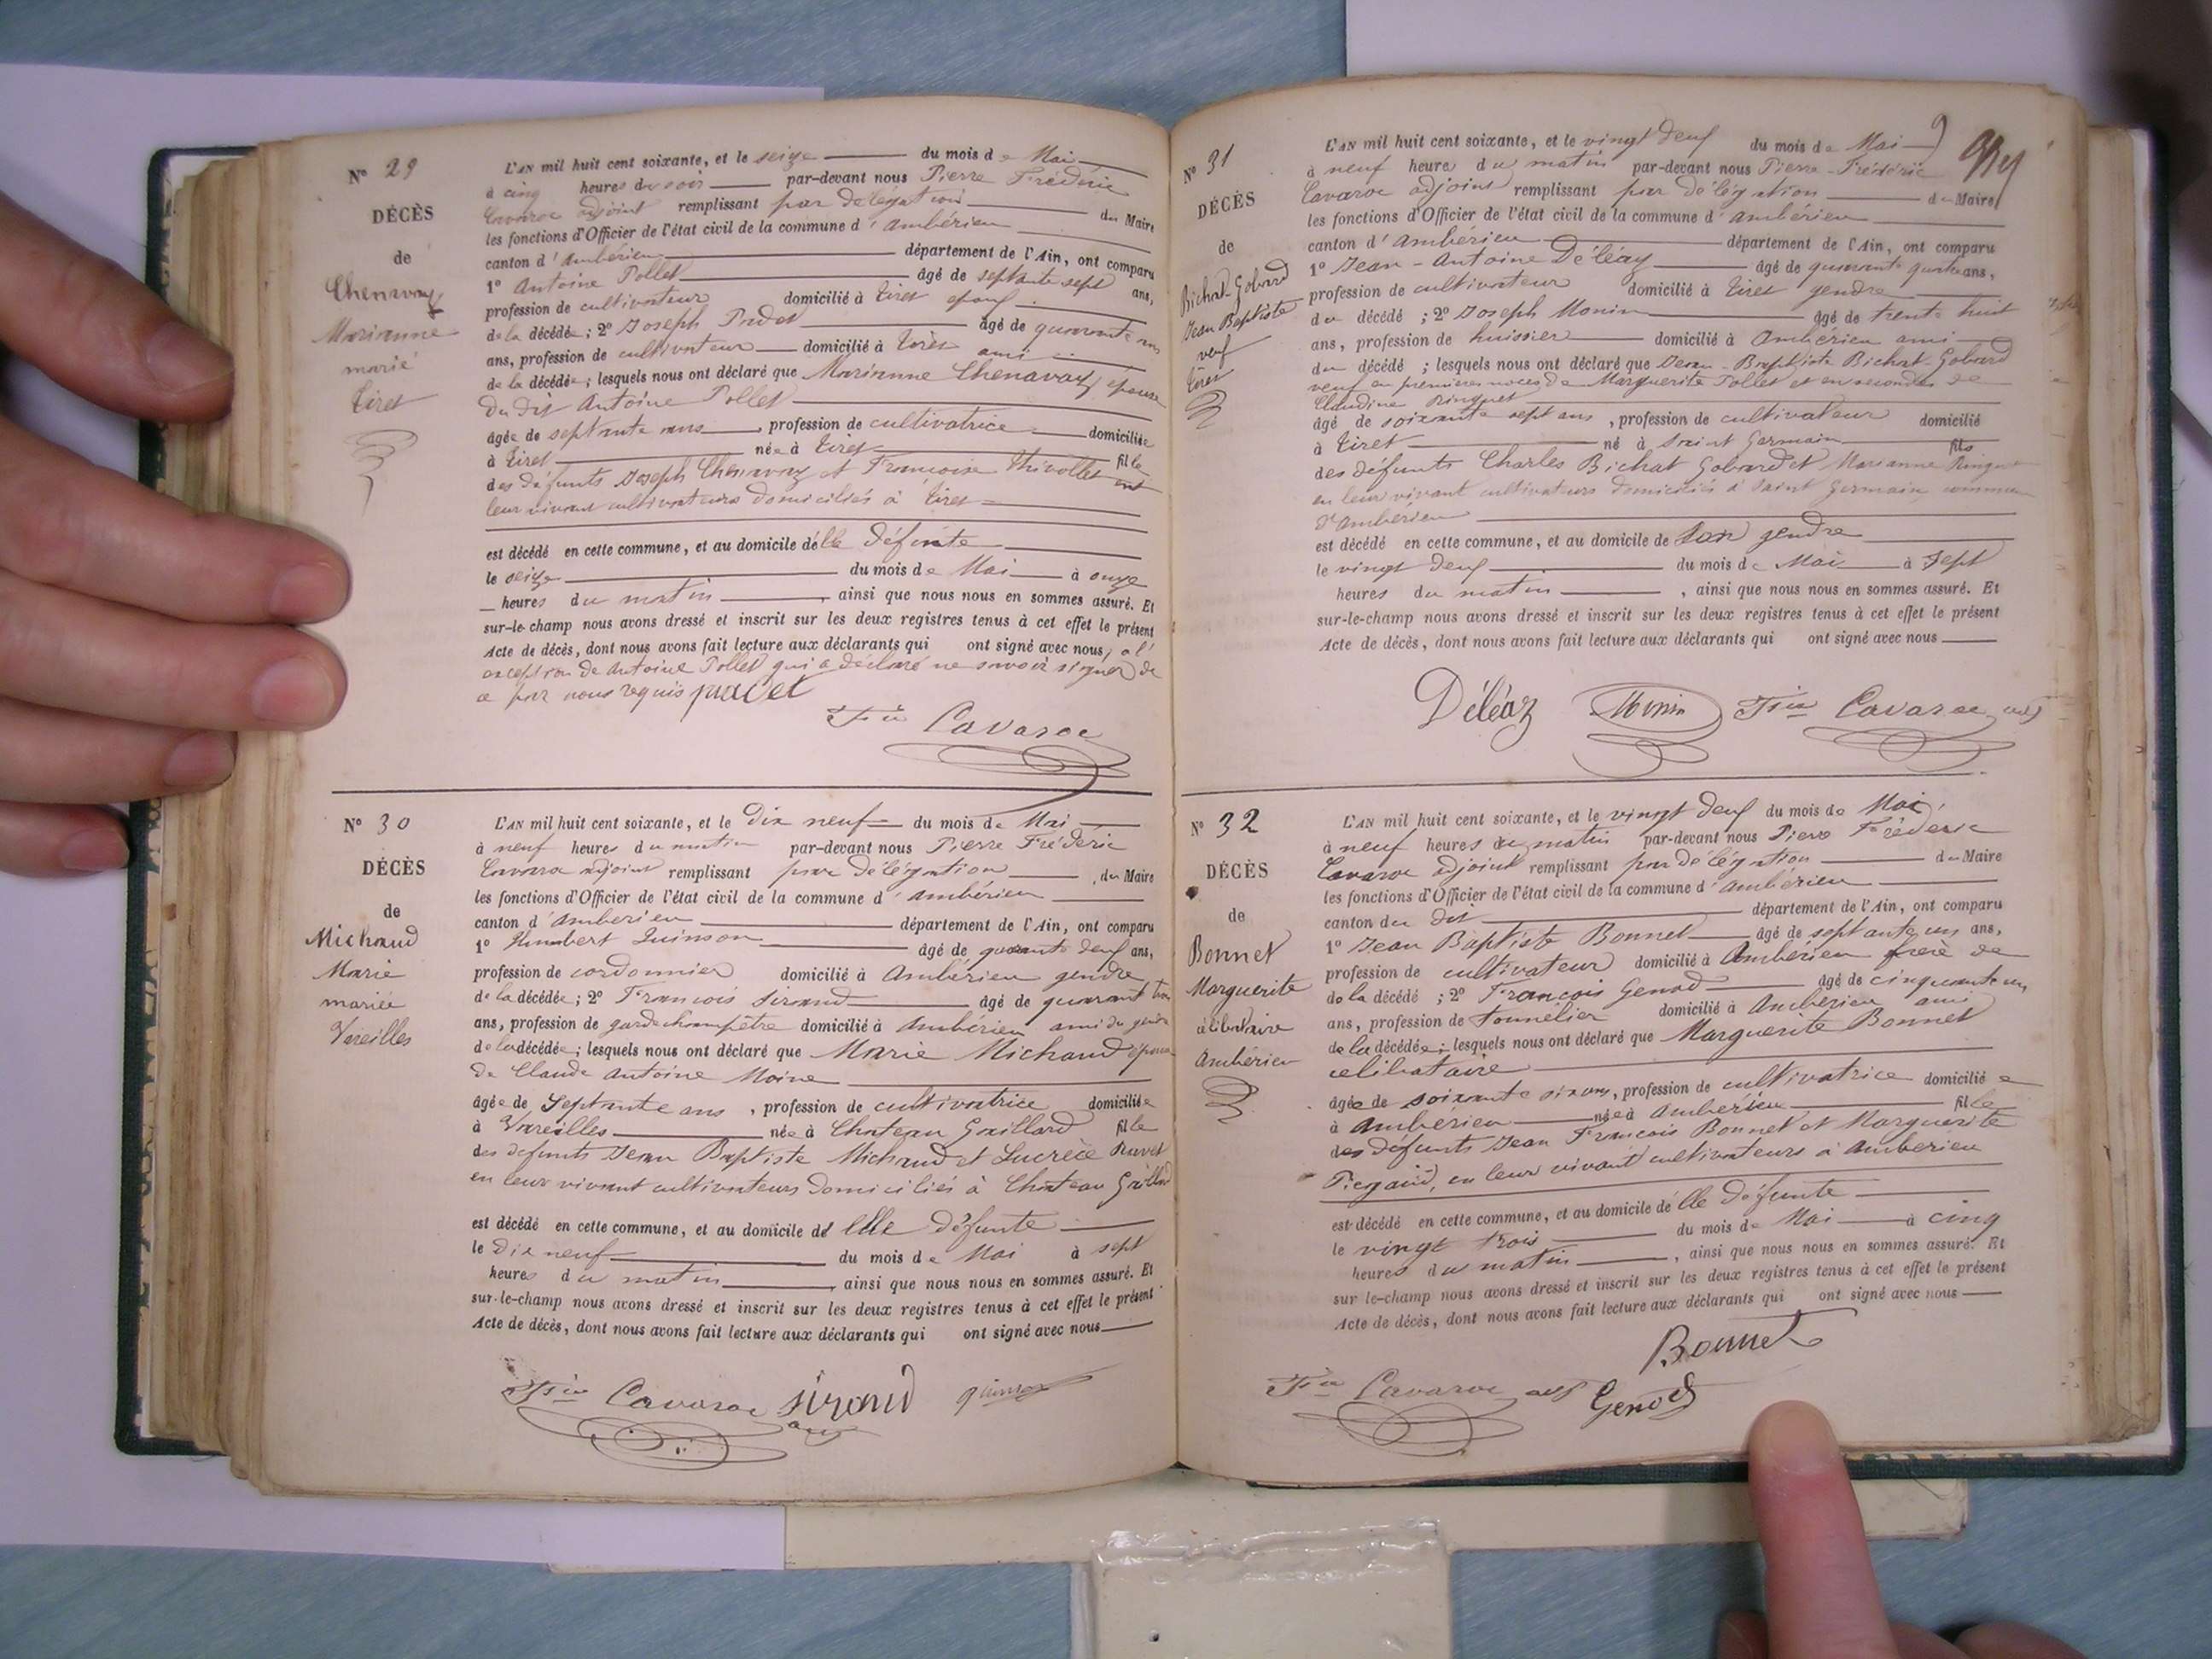 N° 29
DÉCÈS
de
Chenavaz
Marianne
marié
Tiret
L'AN mil huit cent soixante, et le seize du mois de Mai
à cinq heures du soir par-devant nous Pierre Frédéric
Cavaroc adjoint remplissant par délégation du Maire
les fonctions d'Officier de l'état civil de la commune d'ambérieu
canton d'ambérieu département de l'Ain, ont comparu
1° Antoine Pollet âgé de septante sept ans,
profession de cultivateur domicilié à Tiret epoux
de la décédée; 2° Joseph âgé de quarante
ans, profession de cultivateur domicilié à Tiret ami
de la décédée; lesquels nous ont déclaré que Marianne Chenavaz, épouse
du dit Antoine Pollet
âgée de septante ans, profession de cultivatrice domiciliée
à Tiret née à Tiret fille
des défunts Joseph Chenavaz et Françoise Thivollet en
leur vivant cultivateurs domiciliés à Tiret
est décédé en cette commune, et au domicile délle défunte
le seize du mois de Mai à onze
heures du matin, ainsi que nous nous en sommes assuré. Et
sur-le-champ nous avons dressé et inscrit sur les deux registres tenus à cet effet le présent
Acte de décès, dont nous avons fait lecture aux déclarants qui ont signé avec nous, a l'
exception de Antoine Pollet qui a déclaré ne savoir signer de
ce par nous requis
Cavaroc
N° 30
DÉCÈS
de
Michaud
Marie
mariée
Vareilles
L'AN mil huit cent soixante, et le Dix neuf du mois de Mai
à neuf heures du matin par-devant nous Pierre Frédéric
Cavaroc adjoint remplissant par délégation du Maire
les fonctions d'Officier de l'état civil de la commune d'ambérieu
canton d'ambérieu département de l'Ain, ont comparu
1° Humbert Quinson âgé de quarante deux ans,
profession de cordonnier domicilié à Ambérieu gendre
de la décédée; 2° François Sirand âgé de quarante trois
ans, profession de garde champêtre domicilié à Ambérieu ami du gendre
de la décédée; lesquels nous ont déclaré que Marie Michaud épouse
de Claude Antoine Moine
âgée de Septante ans, profession de cultivatrice domiciliée
à Vareilles née à Chateau Gaillard fille
des défunts Jean Baptiste Michaud et Lucrèce Ravet
en leur vivant cultivateurs domiciliés à Chateau Gaillard
est décédé en cette commune, et au domicile de elle défunte
le Dix neuf du mois de Mai à sept
heures du matin, ainsi que nous nous en sommes assuré. Et
sur-le-champ nous avons dressé et inscrit sur les deux registres tenus à cet effet le présent
Acte de décès, dont nous avons fait lecture aux déclarants qui ont signé avec nous
Cavaroc Sirand quinson
N° 31
DÉCÈS
de
Bichat-Gobard
Jean Baptiste
veuf
Tiret
L'AN mil huit cent soixante, et le vingt deux du mois de Mai
à neuf heure du matin par-devant nous Pierre-Frédéric
Cavaroc adjoint remplissant par délégation du Maire
les fonctions d'Officier de l'état civil de la commune d'ambérieu
canton d'ambérieu département de l'Ain, ont comparu
1° Jean-Antoine Déléaz âgé de quarante quatre ans,
profession de cultivateur domicilié à Tiret gendre
du décédé; 2° Joseph Monin âgé de trente huit
ans, profession de huissier domicilié à Ambérieu ami
du décédé; lesquels nous ont déclaré que Jean-Baptiste Bichat Gobard
veuf en premieres noces de Marguerite Pollet et en secondes de
Claudine Ringuet
âgé de soixante sept ans, profession de cultivateur domicilié
à Tiret né à saint Germain fils
des défunts Charles Bichat Gobard et Marianne Ringuet
en leur vivant cultivateurs domiciliés à Saint Germain commune
d'ambérieu
est décédé en cette commune, et au domicile de son gendre
le vingt deux du mois de Mai à sept
heures du matin, ainsi que nous nous en sommes assuré. Et
sur-le-champ nous avons dressé et inscrit sur les deux registres tenus à cet effet le présent
Acte de décès, dont nous avons fait lecture aux déclarants qui ont signé avec nous
Déléaz Monin Cavaroc
N° 32
DÉCÈS
de
Bonnet
Marguerite
célibataire
Ambérieu
L'AN mil huit cent soixante, et le vingt deux du mois de Mai
à neuf heures du matin par-devant nous Pierre Fréderic
Cavaroc adjoint remplissant par délégation du Maire
les fonctions d'Officier de l'état civil de la commune d'ambérieu
canton du dit département de l'Ain, ont comparu
1° Jean Baptiste Bonnet âgé de septante un ans,
profession de cultivateur domicilié à Ambérieu frère de
de la décédé; 2° François Genod âgé de cinquante un
ans, profession de Tonnelier domicilié à Ambérieu ami
de la décédée; lesquels nous ont déclaré que Marguerite Bonnet
celibataire
âgée de soixante ans, profession de cultivatrice domiciliée
à Ambérieu née à Ambérieu fille
des défunts Jean François Bonnet et Marguerite
en leur vivant cultivateurs à Ambérieu
est décédé en cette commune, et au domicile délle défunte
le vingt trois du mois de Mai à cinq
heures du matin, ainsi que nous nous en sommes assuré. Et
sur le-champ nous avons dressé et inscrit sur les deux registres tenus à cet effet le présent
Acte de décès, dont nous avons fait lecture aux déclarants qui ont signé avec nous
Bonnet
Cavaroc Genod